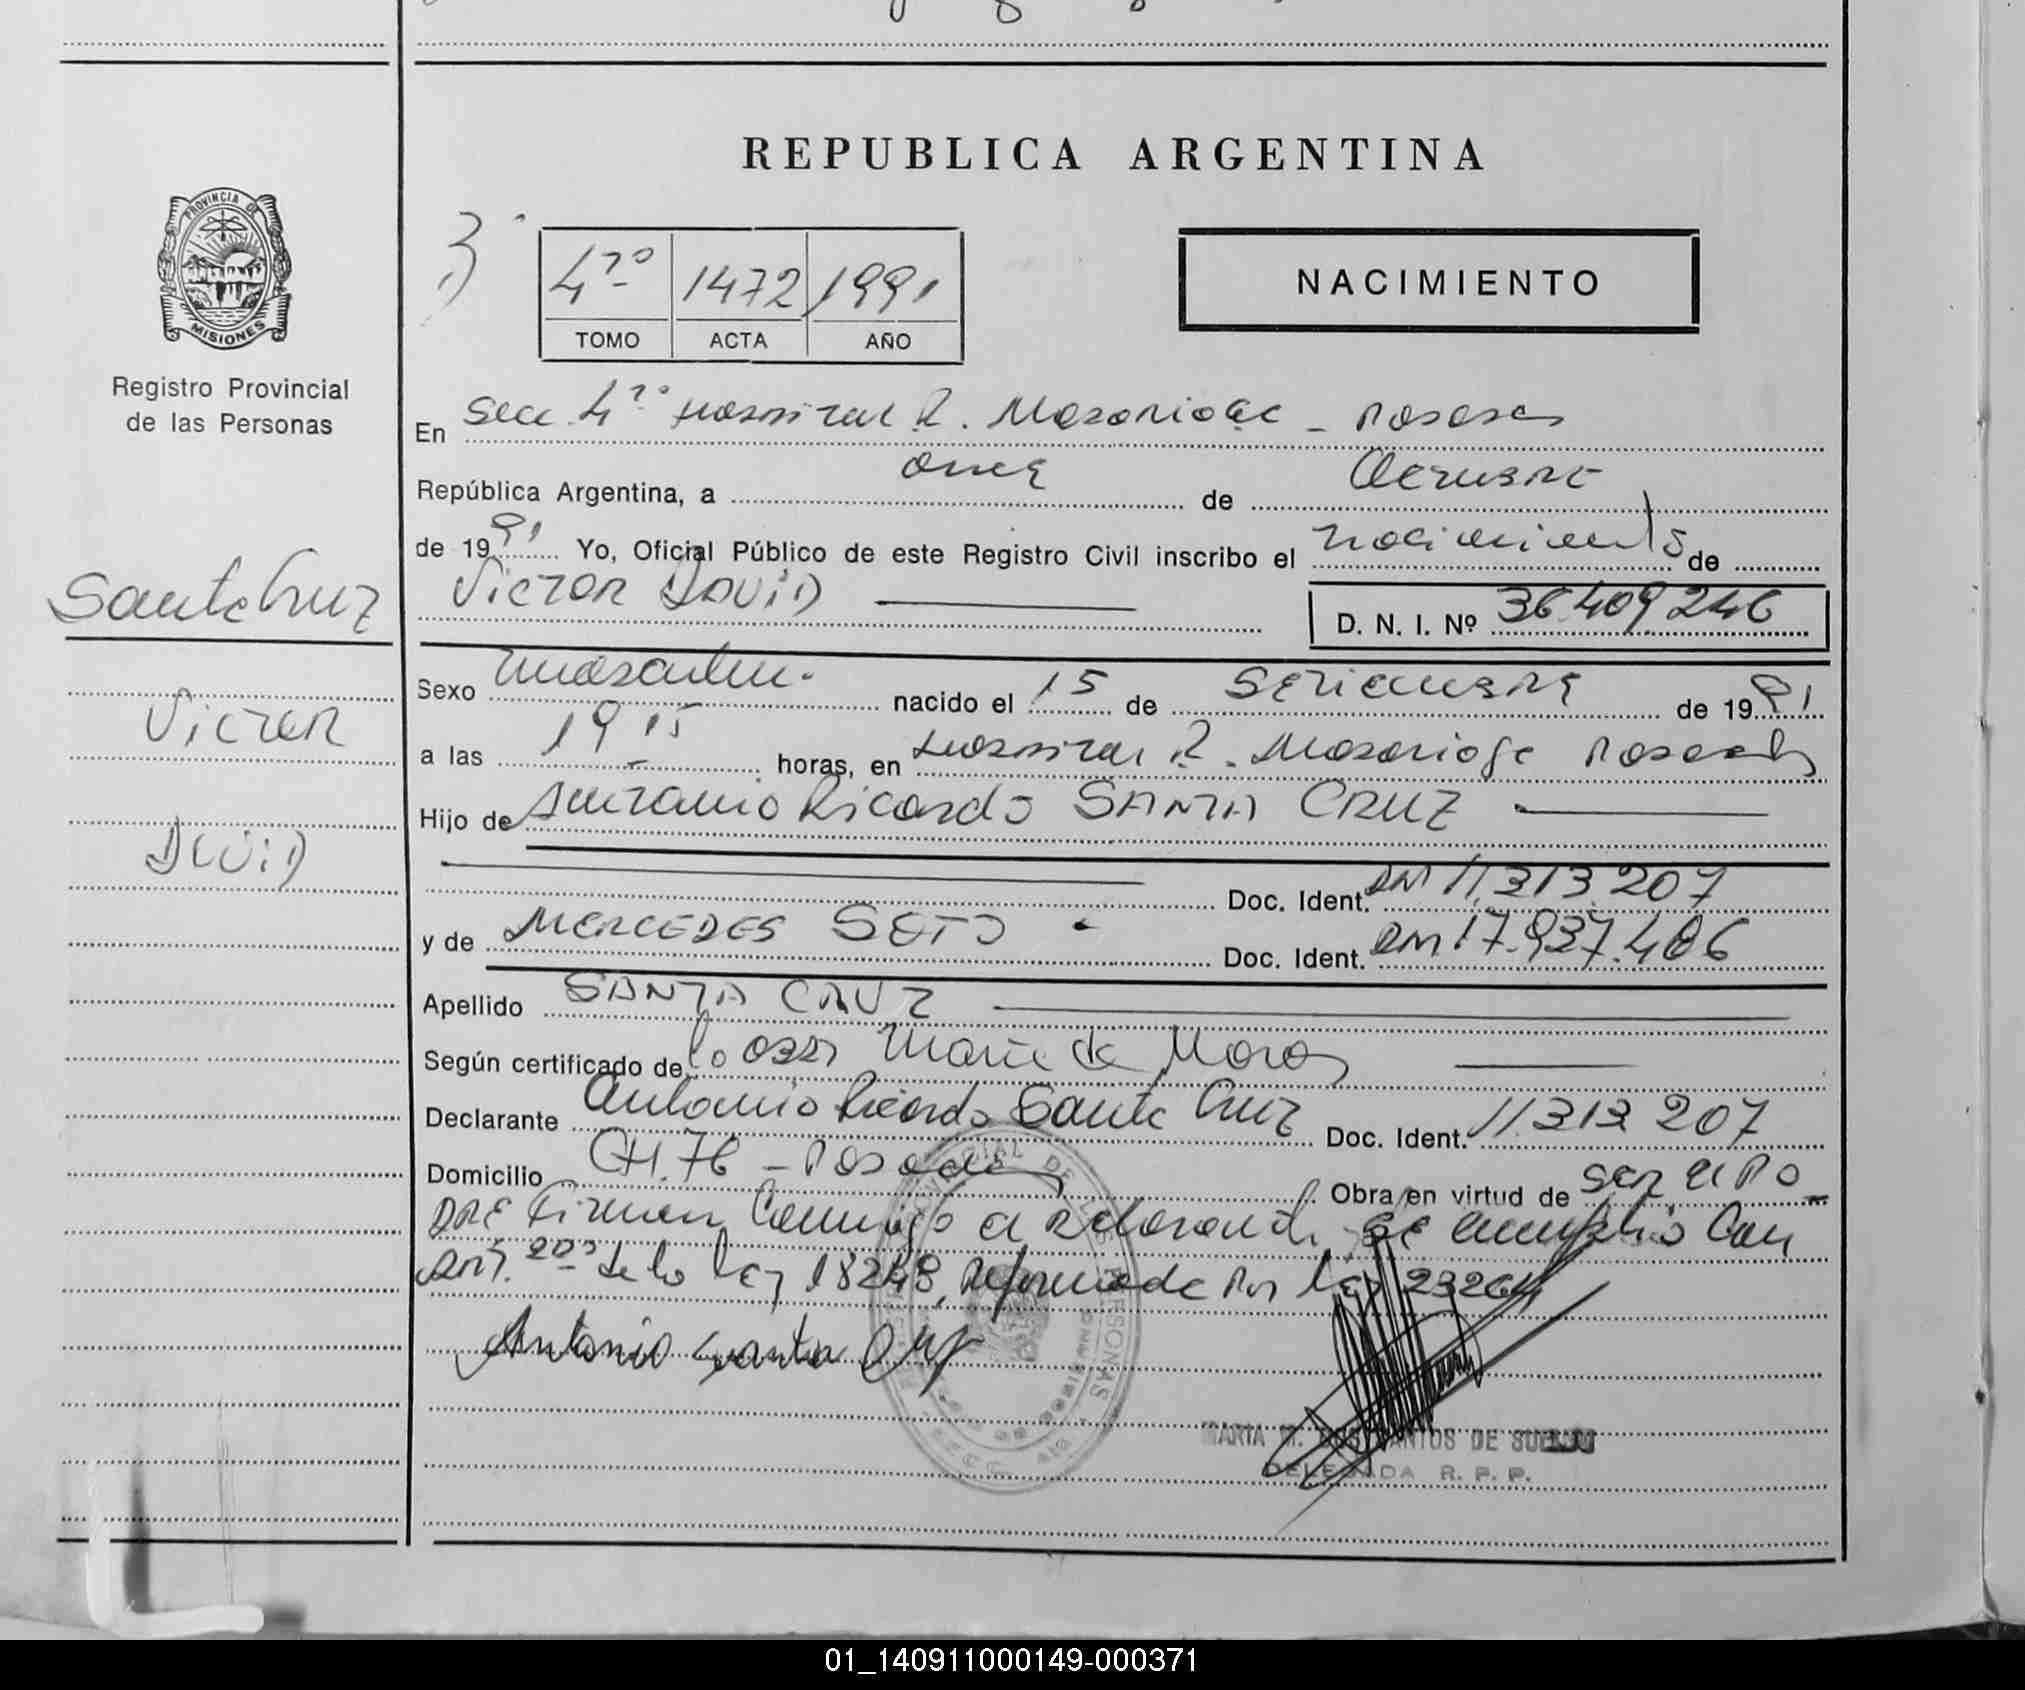 REPUBLICA ARGENTINA
PROVINCIA DE
MISIONES
Registro Provincial
de las Personas
4ª 1472 1991
TOMO ACTA AÑO
NACIMIENTO
En Secc 4ª Hospital R. Madariaga - Posadas
República Argentina, a once de Octubre
de 1991 Yo, Oficial Público de este Registro Civil inscribo el nacimiento de
Victor David
D. N. I. Nº 36.409.246
Santa Cruz
Victor
David
Sexo masculino nacido el 15 de Setiembre de 1991
a las 19 15 horas, en Hospital R. Madariaga Posadas
Hijo de Antonio Ricardo SANTA CRUZ
Doc. Ident. DNI 11.313.207
y de MERCEDES SOTO Doc. Ident. DNI 17.937.486
Apellido SANTA CRUZ
Según certificado de la obst Maria de
Declarante Antonio Ricardo Santa Cruz Doc. Ident. 11.313 207
Domicilio CH.76 - Posadas Obra en virtud de ser el pa
dre Firman Conmigo el declarante se cumplio con
art. 20º de la ley 18248, reformada por ley 23264
Antonio Santa Cruz
MARTA M. DOS SANTOS DE
DELEGADA R. P. P.
01_140911000149-000371